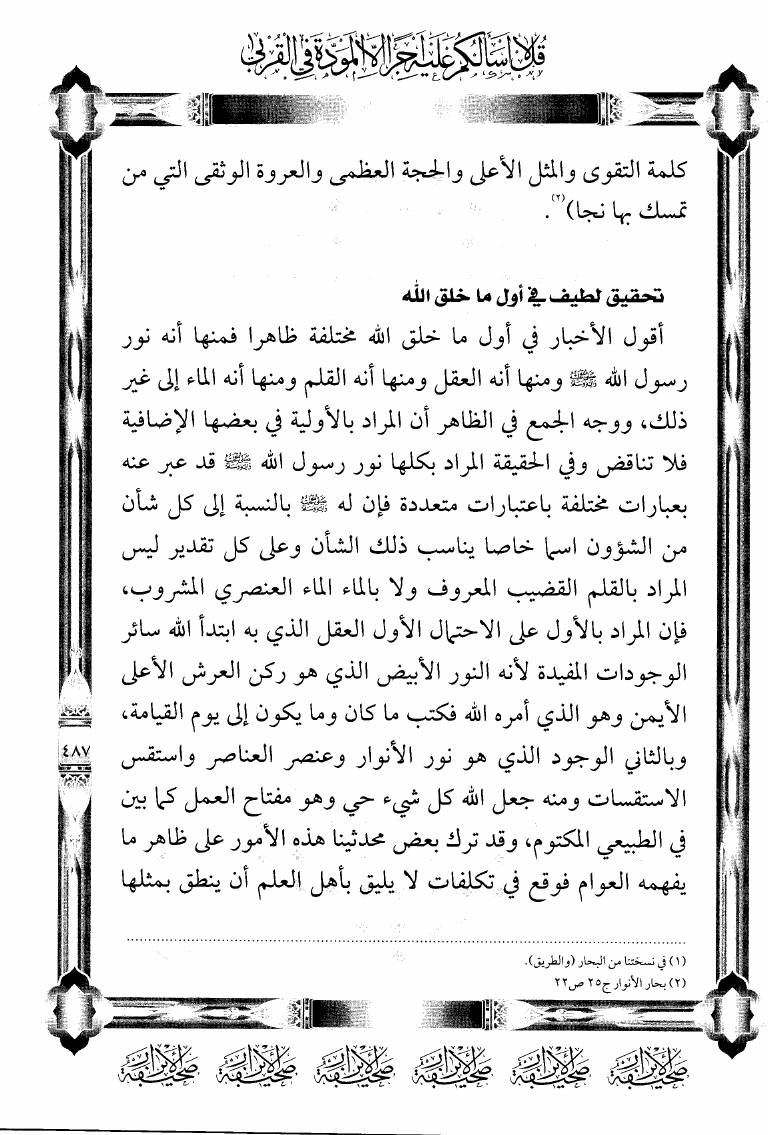 قل لا أسألكم عليه أجرا إلا المودة في القربى
كلمة التقوى والمثل الأعلى والحجة العظمى والعروة الوثقى التي من
تمسك بها نجا)(٢).
تحقيق لطيف في أول ما خلق الله
أقول الأخبار في أول ما خلق الله مختلفة ظاهرا فمنها أنه نور
رسول الله ﷺ ومنها أنه العقل ومنها أنه القلم ومنها أنه الماء إلى غير
ذلك، ووجه الجمع في الظاهر أن المراد بالأولية في بعضها الإضافية
فلا تناقض وفي الحقيقة المراد بكلها نور رسول الله ﷺ قد عبر عنه
بعبارات مختلفة باعتبارات متعددة فإن له ﷺ بالنسبة إلى كل شأن
من الشؤون اسما خاصا يناسب ذلك الشأن وعلى كل تقدير ليس
المراد بالقلم القضيب المعروف ولا بالماء الماء العنصري المشروب،
فإن المراد بالأول على الاحتمال الأول العقل الذي به ابتدأ الله سائر
الوجودات المفيدة لأنه النور الأبيض الذي هو ركن العرش الأعلى
الأيمن وهو الذي أمره الله فكتب ما كان وما يكون إلى يوم القيامة،
وبالثاني الوجود الذي هو نور الأنوار وعنصر العناصر واستقس
الاستقسات ومنه جعل الله كل شيء حي وهو مفتاح العمل كما بين
في الطبيعي المكتوم، وقد ترك بعض محدثينا هذه الأمور على ظاهر ما
يفهمه العوام فوقع في تكلفات لا يليق بأهل العلم أن ينطق بمثلها
٤٨٧
(١) في نسختنا من البحار (والطريق).
(٢) بحار الأنوار ج٢٥ ص٢٢
صحيفة الأبرار صحيفة الأبرار صحيفة الأبرار صحيفة الأبرار صحيفة الأبرار صحيفة الأبرار